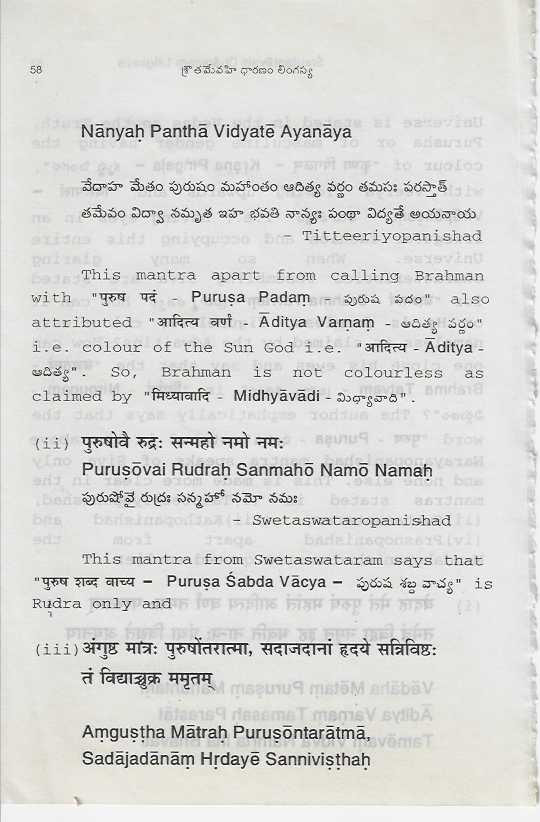 58
శ్రౌతమేవహి ధారణం లింగస్య
Nānyaḥ Panthā Vidyatē Ayanāya
వేదాహ మేతం పురుషం మహాంతం ఆదిత్య వర్ణం తమసః పరస్తాత్
తమేవం విద్వా నమృత ఇహ భవతి నాన్యః పంథా విద్యతే అయనాయ
– Titteeriyopanishad
This mantra apart from calling Brahman
with "पुरुष पदं - Puruṣa Padaṃ - పురుష పదం" also
attributed "आदित्य वर्णं - Āditya Varṇaṃ - ఆదిత్య వర్ణం"
i.e. colour of the Sun God i.e. "आदित्य - Āditya -
ఆదిత్య". So, Brahman is not colourless as
claimed by "मिथ्यावादि - Midhyāvādi - మిథ్యావాది".
(ii) पुरुषोवै रुद्रः सन्महो नमो नमः
Purusōvai Rudraḥ Sanmahō Namō Namaḥ
పురుషోవై రుద్రః సన్మహో నమో నమః
– Swetaswataropanishad
This mantra from Swetaswataram says that
"पुरुष शब्द वाच्य – Puruṣa Śabda Vācya – పురుష శబ్ద వాచ్య" is
Rudra only and
(iii) अंगुष्ठ मांत्रः पुरुषोंतरात्मा, सदाजदानां हृदये सन्निविष्टः
तं विद्याच्छुक्र ममृतम्
Aṃguṣṭha Mātraḥ Puruṣōntarātmā,
Sadājadānāṃ Hṛdayē Sanniviṣṭhaḥ